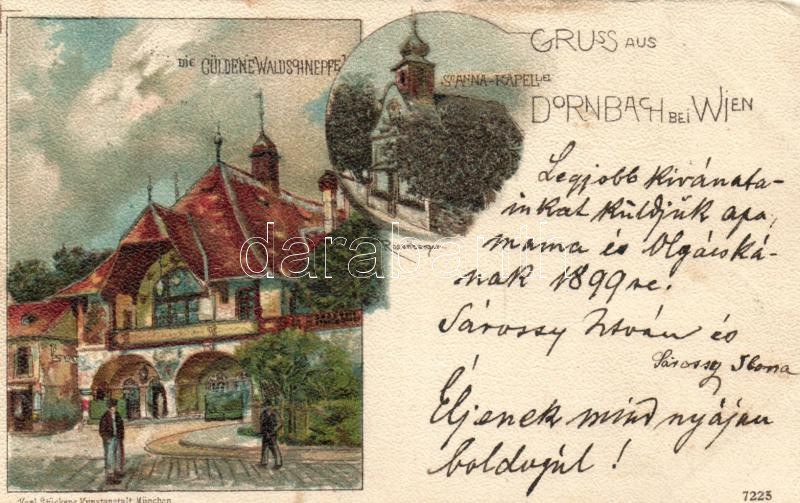 DIE GÜLDENE WALDSCHNEPFE
ST ANNA-KAPELLE
GRUSS AUS
DORNBACH BEI WIEN
Legjobb kivánata-
inkat küldjük apa,
mama és Olgácská-
nak 1899re.
Sárossy István és
Sárossy Ilona
Éljenek mindnyájan
boldogúl!
Rosenberger
darabanth
Karl Stückers Kunstanstalt, München
7225